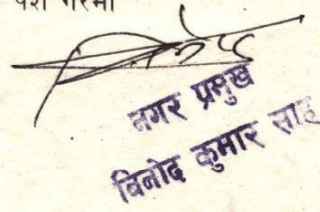 पेश गरेमा
नगर प्रमुख
बिनोद कुमार साह